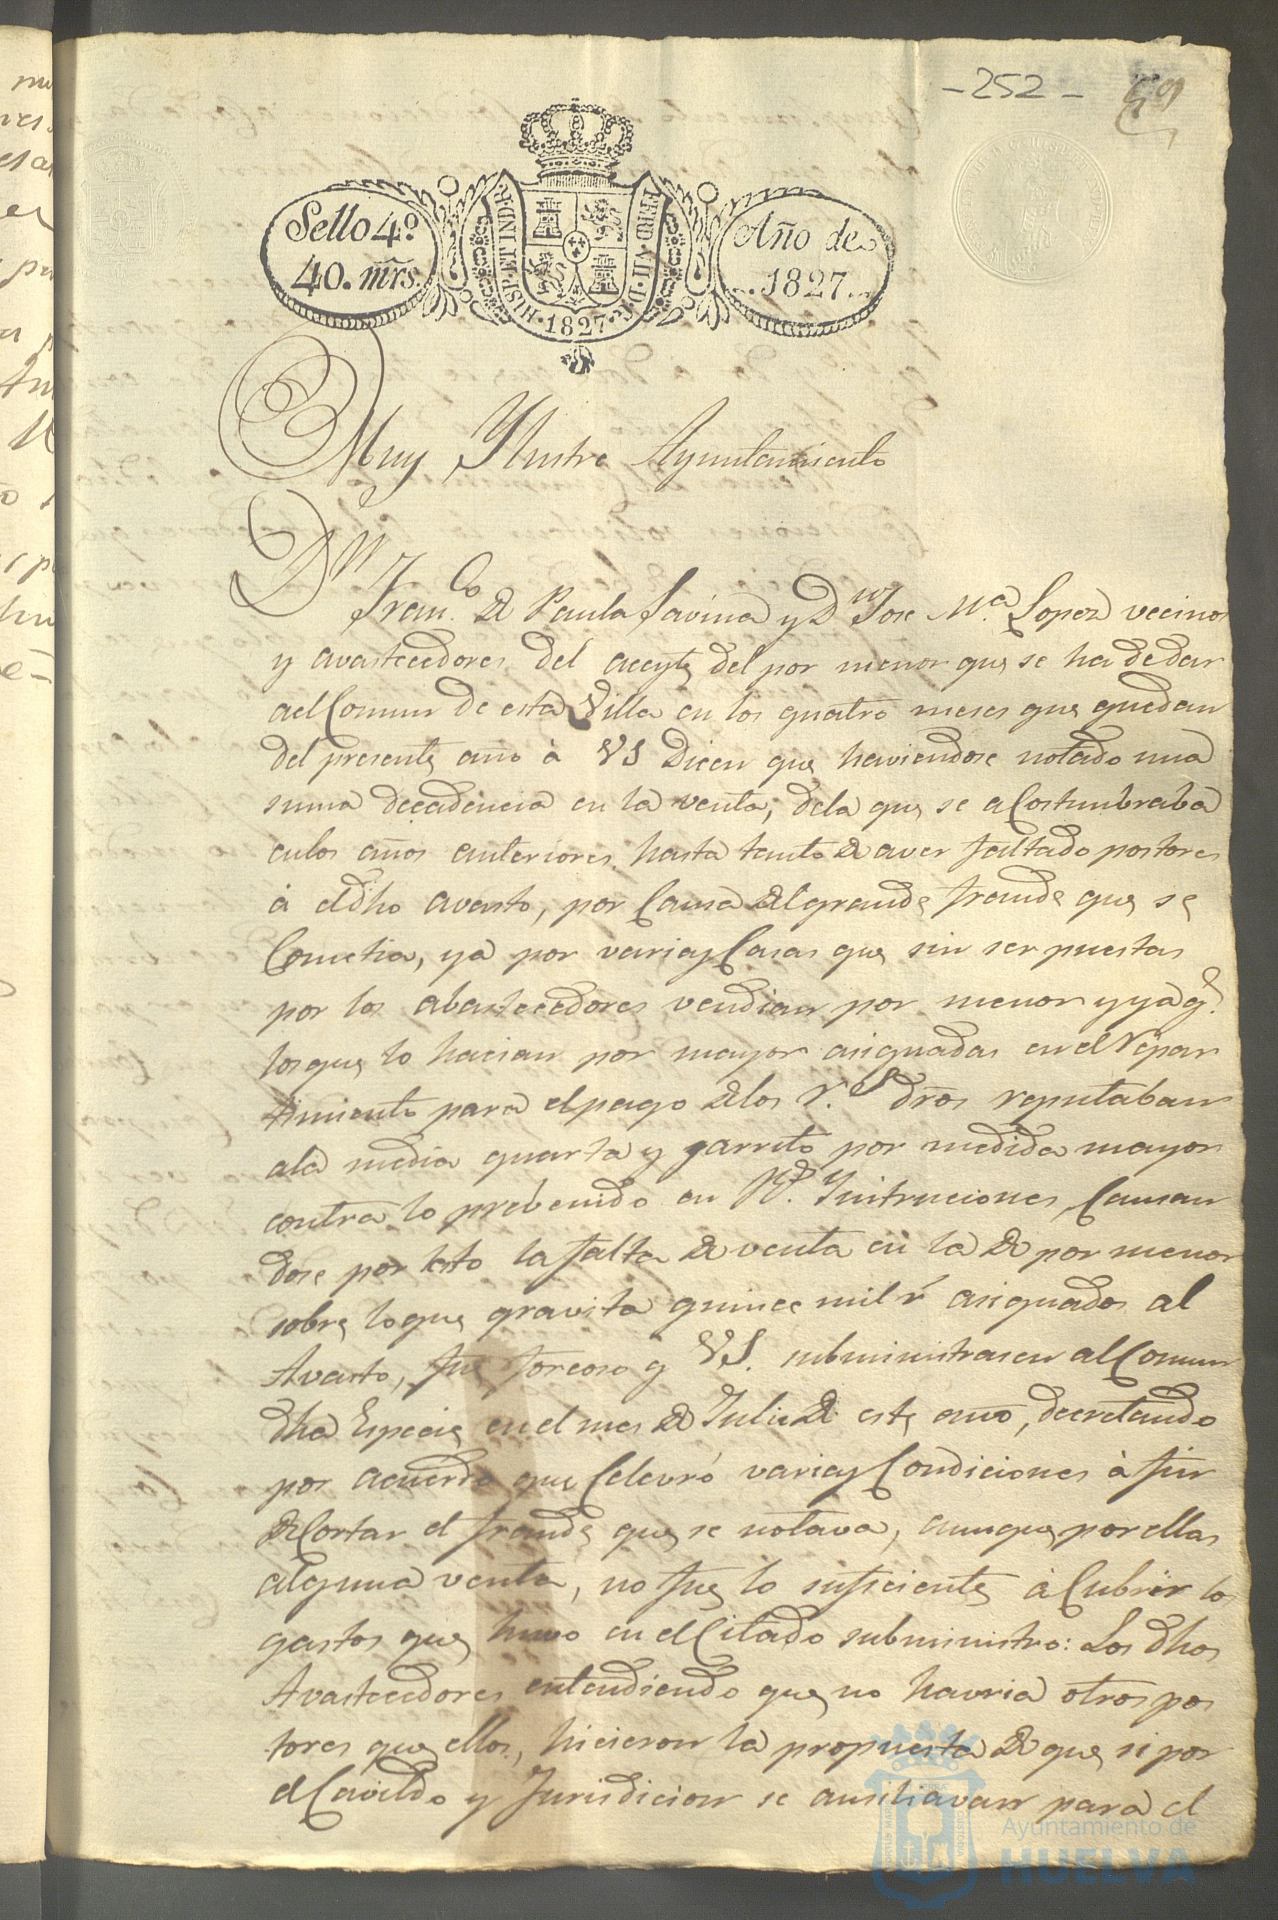 -252- 59
Sello 4º
40. mrs.
HISP. ET IND. R. FERD. VII. D. G. 1827
Año de
1827.
Muy Ylustre Ayuntamiento
Dn Franco. de Paula Savina y Dn Jose Ma. Lopez vecinos
y avastecedores del aceyte del por menor que se ha de dar
al Comun de esta Villa en los quatro meses que quedan
del presente año à VS Dicen que haviendose notado una
suma decadencia en la venta, dela que se acostumbraba
en los años anteriores, hasta tanto de aver faltado postores
á el dho avasto, por Causa del grande fraude que se
Cometia, ya por varias Casas que sin ser puestas
por los abastecedores vendian por menor y ya qe.
los que lo hacian por mayor asignadas en el repar
timiento para el pago de los rs. dros reputaban
ala media quarta y jarrito por medida mayor
contra lo prebenido en Rs. Ynstruciones, Causan
dose por esto la falta de venta en la de por menor
sobre lo que gravita quince mil r asignados al
Avasto, fue forcoso q VS. subministrasen al Comun
dha Especie en el mes de Julio de este año, decretando
por acuerdo que Celevró varias Condiciones à fin
de Cortar el fraude que se notava, aunque por ellas
alguna venta, no fue lo suficiente á Cubrir lo
gastos que huvo en el Citado subministro: Los dhos
Avastecedores entendiendo que no havria otros pos
tores que ellos, hicieron la propuesta de que si por
el Cavildo y Jurisdicion se ausiliavan para el
Ayuntamiento de
HUELVA